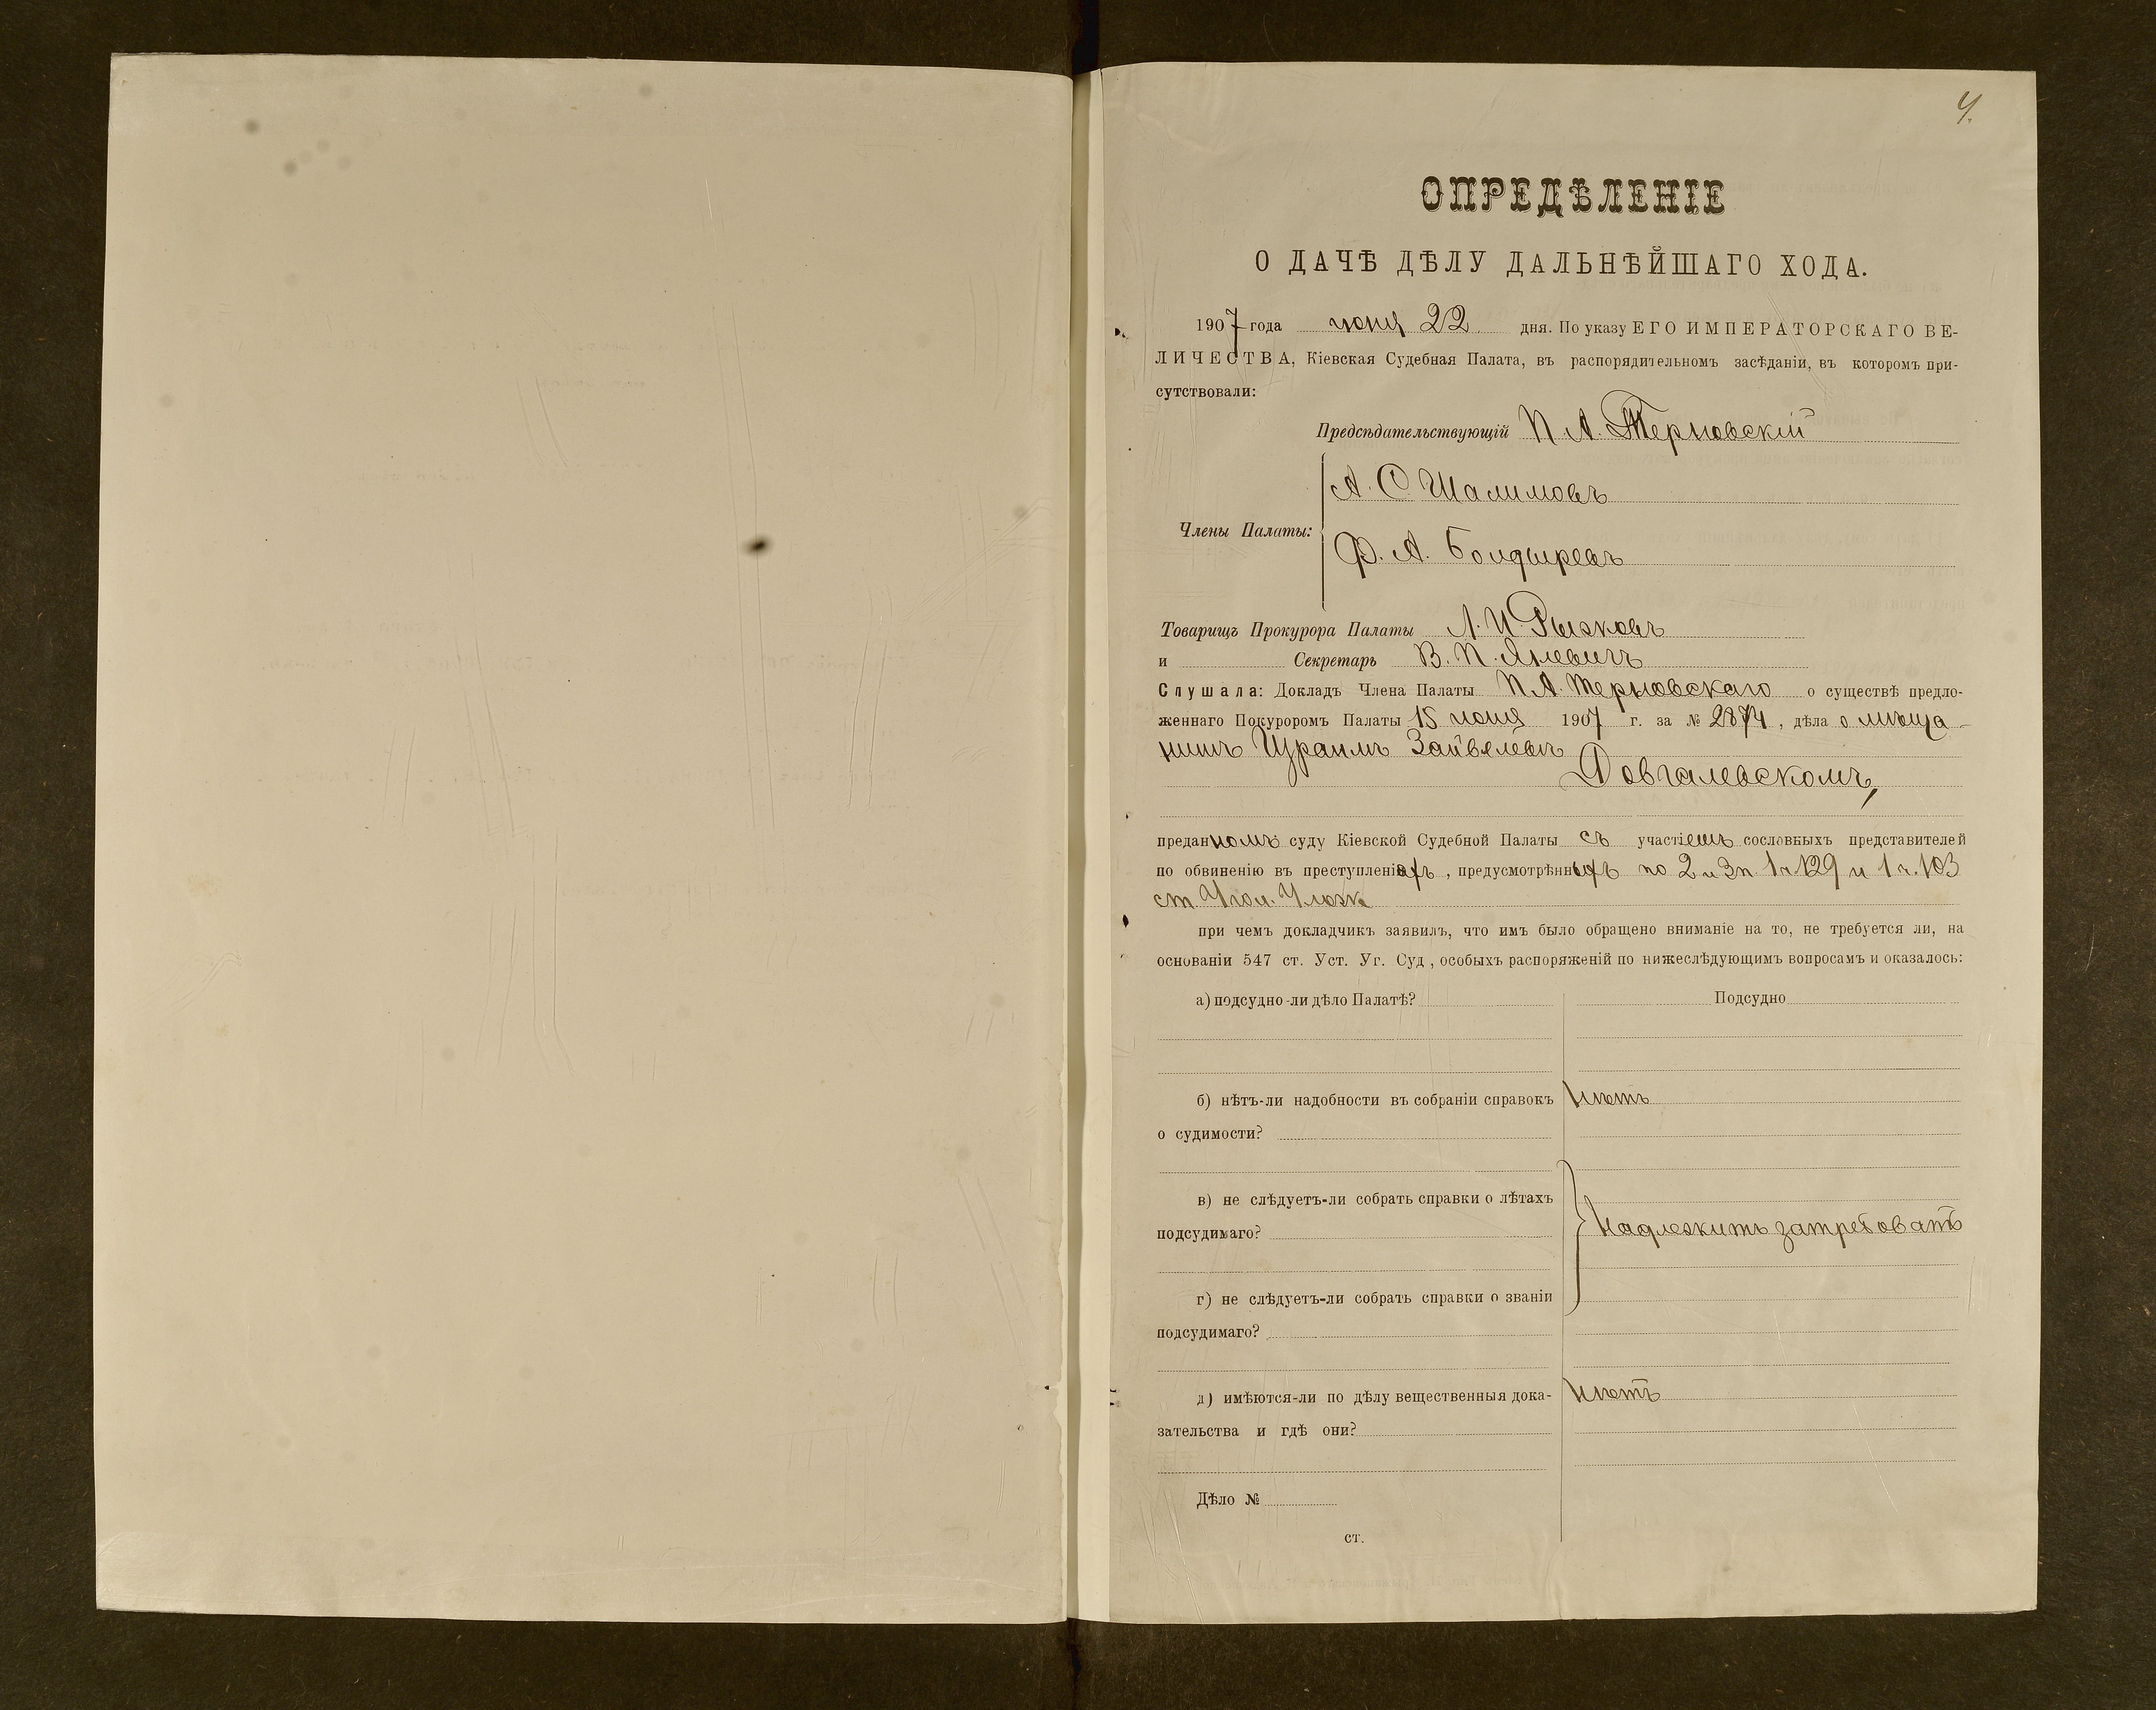 4.
ОПРЕДѢЛЕНІЕ
О ДАЧѢ ДѢЛУ ДАЛЬНѢЙШАГО ХОДА.
1907 года іюня 22 дня. По указу ЕГО ИМПЕРАТОРСКАГО ВЕ-
ЛИЧЕСТВА, Кіевская Судебная Палата, въ распорядительномъ засѣданіи, въ которомъ при-
сутствовали:
Предсѣдательствующій П. А. Терновскій
А. С. Шалимовъ
Члены Палаты:
Ф. А. Болдыревъ
Товарищъ Прокурора Палаты Л. И. Рыжковъ
и Секретарь В. П. Яневичъ
Слушала: Докладъ Члена Палаты П. А. Терновскаго о существѣ предло-
женнаго Покуроромъ Палаты 15 іюня 1907 г. за № 2874, дѣла о мѣща-
нинѣ Израилѣ Зайвелевѣ
Довгалевскомъ,
преданномъ суду Кіевской Судебной Палаты съ участіемъ сословныхъ представителей
по обвиненію въ преступленіяхъ, предусмотрѣнныхъ по 2 и 3 п. 1 ч. 129 и 1 ч. 103
ст. Угол. Улож.
при чемъ докладчикъ заявилъ, что имъ было обращено вниманіе на то, не требуется ли, на
основаніи 547 ст. Уст. Уг. Суд., особыхъ распоряженій по нижеслѣдующимъ вопросамъ и оказалось:
а) подсудно-ли дѣло Палатѣ? Подсудно
б) нѣтъ-ли надобности въ собраніи справокъ нѣтъ
о судимости?
в) не слѣдуетъ-ли собрать справки о лѣтахъ
подсудимаго? Надлежитъ затребовать
г) не слѣдуетъ-ли собрать справки о званіи
подсудимаго?
д) имѣются-ли по дѣлу вещественныя дока- нѣтъ
зательства и гдѣ они?
Дѣло №
ст.